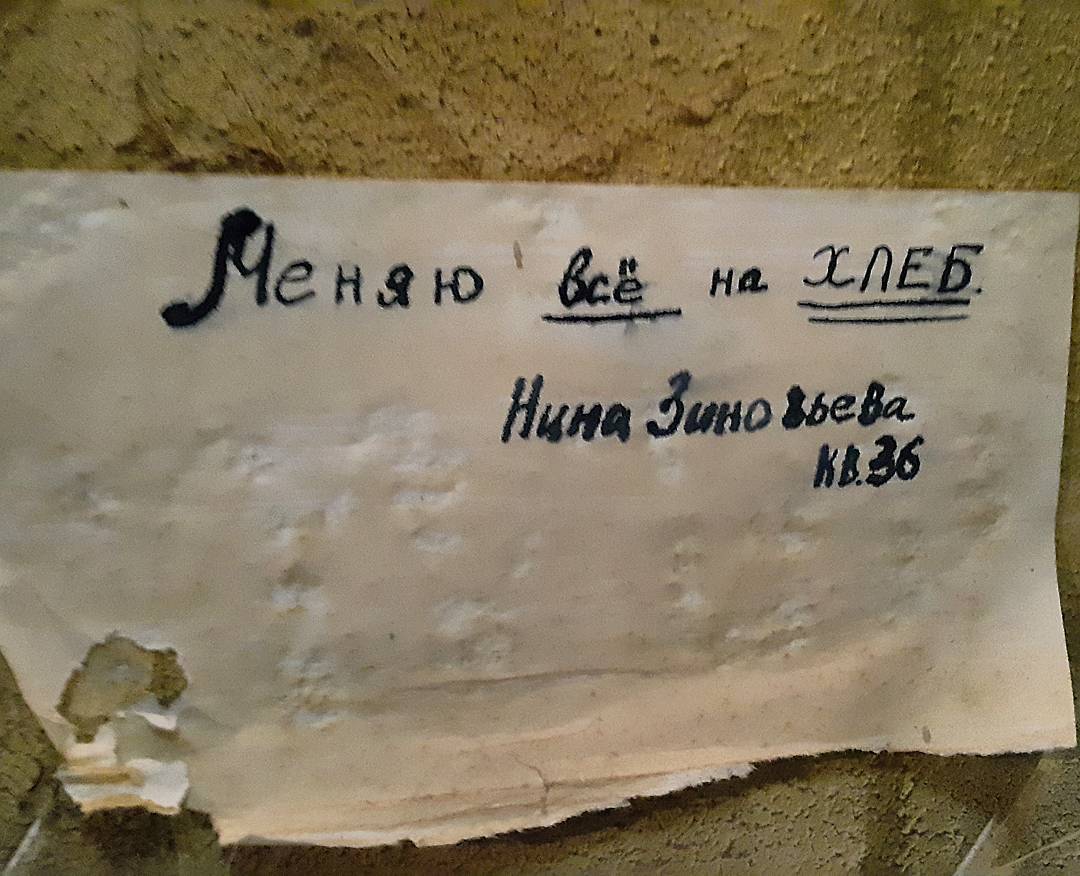 Меняю всё на ХЛЕБ.
Нина Зиновьева
кв.36